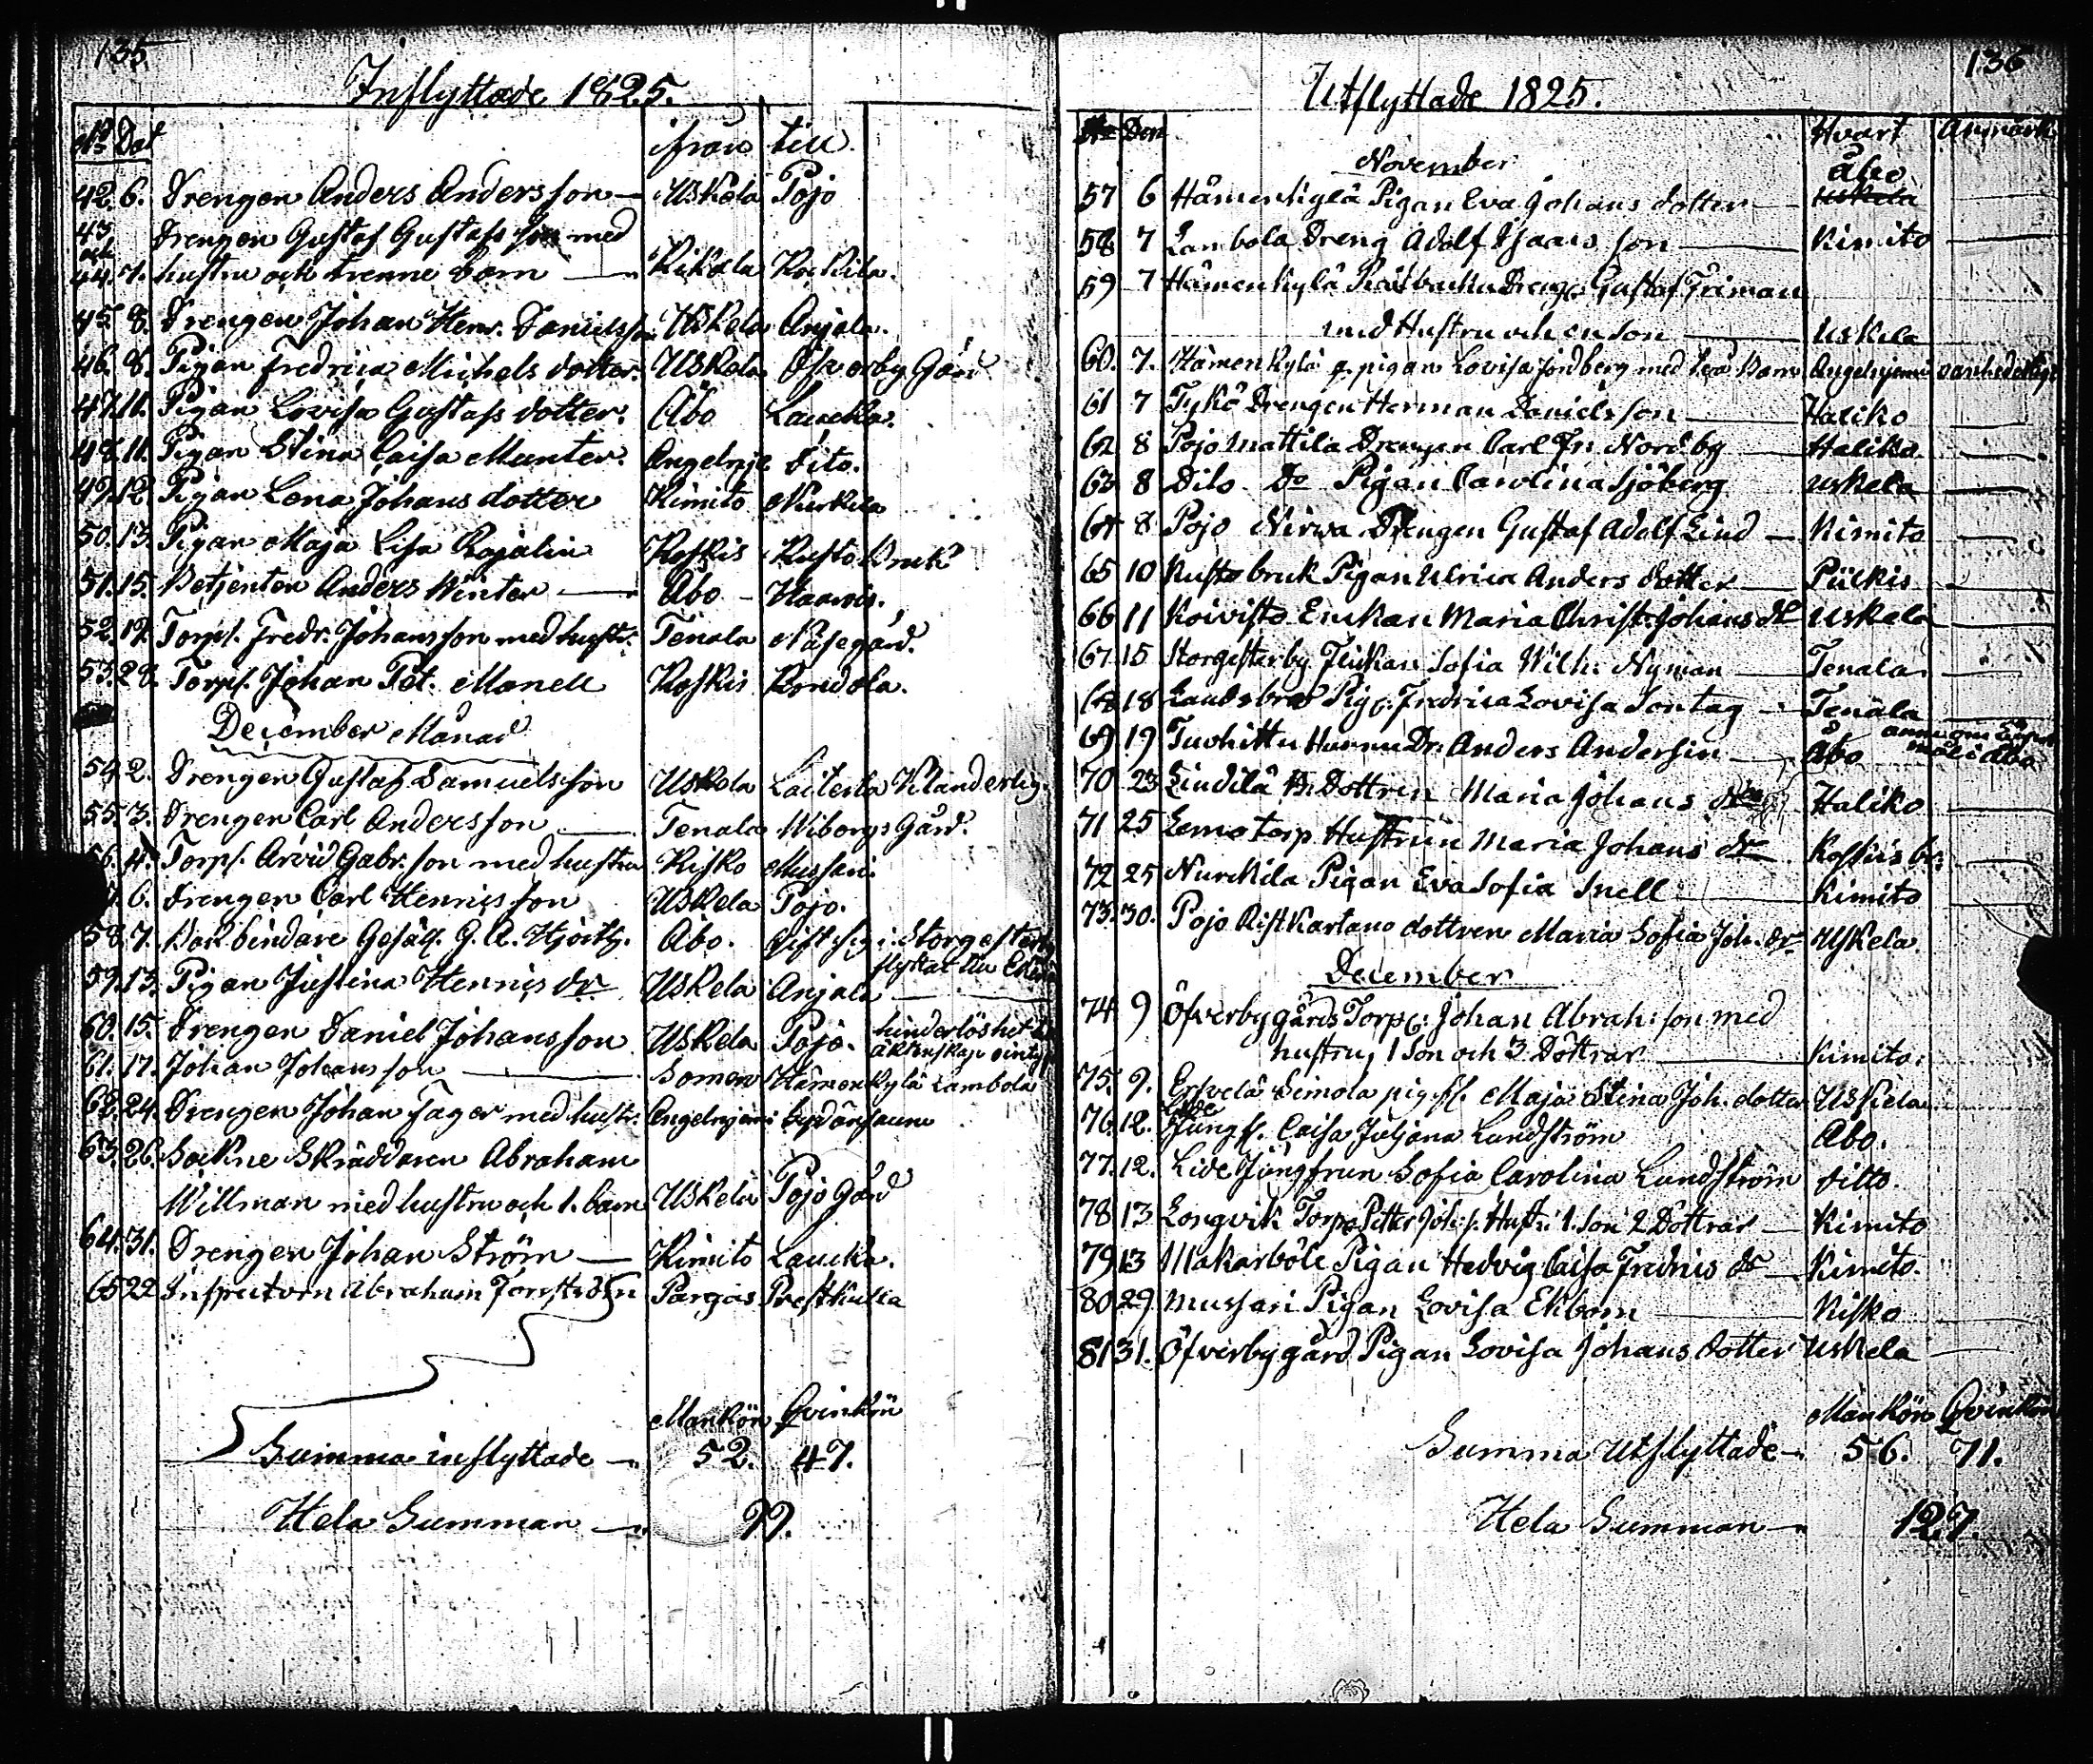 135.
Inflyttade 1825.
No Dat ifrån till
42. 6. Drengen Anders Andersson Uskela Pojo
43 Drengen Gustaf Gustafs son med
och
44. 7. hustru och trenne barn Kikala Kockila.
45. 8. Drengen Johan Henr. Danielsson Uskela Anjala.
46. 8. Pigan Fredrica Michels dotter. Uskela Öfverby Gård
47. 11. Pigan Lovisa Gustafs dotter. Åbo Lauckka.
48. 11. Pigan Stina Caisa Munter. Angelnje dito.
49. 12. Pigan Lena Johans dotter Kimito Nurkila
50. 13. Pigan Maja Lisa Rojalin Koskis Kusto bruk
51. 15. Betjenten Anders Winter Åbo Haarois.
52. 19. Torp. Fredr. Johansson med hustr. Tenala Näsegård.
53. 28. Torp. Johan Pet. Monell Koskis Kondola.
December Månad
54 2. Drengen Gustaf Samuelsson Uskela Laiterla Klanderlig.
55. 3. Drengen Carl Andersson Tenala Wiborgs Gård.
56. 4. Torp. Arvid Gabr. son med hustru Kisko Mussari.
6. Drengen Carl Hennisson Uskela Pojo.
58. 7. Bokbindare Gesäll. G. A. Hjorth. Åbo. Gift sig i Storgesterby
flyttat till
59. 13. Pigan Justina Hennis dr Uskela Anjala
60. 15. Drengen Daniel Johansson Uskela Pojo. hinderlöshet till
äktenskap
61. 17. Johan Johansson Somero Hämenkylä Lambola
62. 24. Drengen Johan Fager med hustr. Angelnjemi
63. 26. Sockne Skräddaren Abraham
Willman med hustru och 1. barn Uskela Pojo Gård
64. 31. Drengen Johan Ström Kimito Laucka.
65 22 Inspectorn Abraham Forsström Pargas Prestkulla
Mankön Qvinkön
Summa inflyttade 52. 47.
Hela Summan 99.
136
Utflyttade 1825.
No Den Hvart Anmärk
November Åbo
57 6 Hämenkylä Pigan Eva Johans dotter Uskela
58 7 Lambola Dreng Adolf Isaacs son Kimito
59 7 Hämenkylä Dreng. Gustaf Friman
med Hustru och en son Uskela
60. 7. Hämenkylä q. pigan Lovisa Sondberg med två Barn Angelnjemi
61 7 Tykö Drengen Herman Danielsson Haliko
62 8 Pojo Mattila Drengen Carl Fr: Nordby Haliko
63 8 Dito Do Pigan Carolina Sjöberg Uskela
64 8 Pojo Nirva Drengen Gustaf Adolf Lind Kimito
65 10 Kusto bruk Pigan Ulrica Anders dotter Piikis
66 11 Koivisto Enkan Maria Christ: Johans dr Uskela
67. 15 Storgesterby Flickan Sofia Wilh: Nyman Tenala
68 18 Landsbro Pig. Fredrica Lovisa Sontag Tenala
69 19 Tuohittu Hannu Dr: Anders Andersin Åbo
70 23 Lindilä B. Dottren Maria Johans dr Haliko
71 25 Lemo torp Hustrun Maria Johans dr Koskis br:
72 25 Nurckila Pigan Eva Sofia Snell Kimito
73. 30. Pojo Ristkartano dottren Maria Sofia Joh. dr Uskela.
December
74 9 Öfverbygårds Torp: Johan Abrah: son med
hustru, 1 Son och 3. Döttrar Kimito.
75. 9. Seimola pig. Maja Stina Joh. dotter Uskela
Lide
76. 12. Jungf. Caisa Juljana Lundström Åbo.
77. 12. Lide Jungfrun Sofia Carolina Lundström ditto.
78 13 Longvik Torp. Petter Joh: s. Hustr: 1. Son 2 Döttrar Kimito
79 13 Makarböle Pigan Hedvig Caisa Fredris dr Kimito.
80 29. Mussari Pigan Lovisa Ekbom Kisko
81 31. Öfverbygård Pigan Lovisa Johans dotter Uskela
Mankön Qvinkön
Summa Utflyttade 56. 71.
Hela Summan 127.